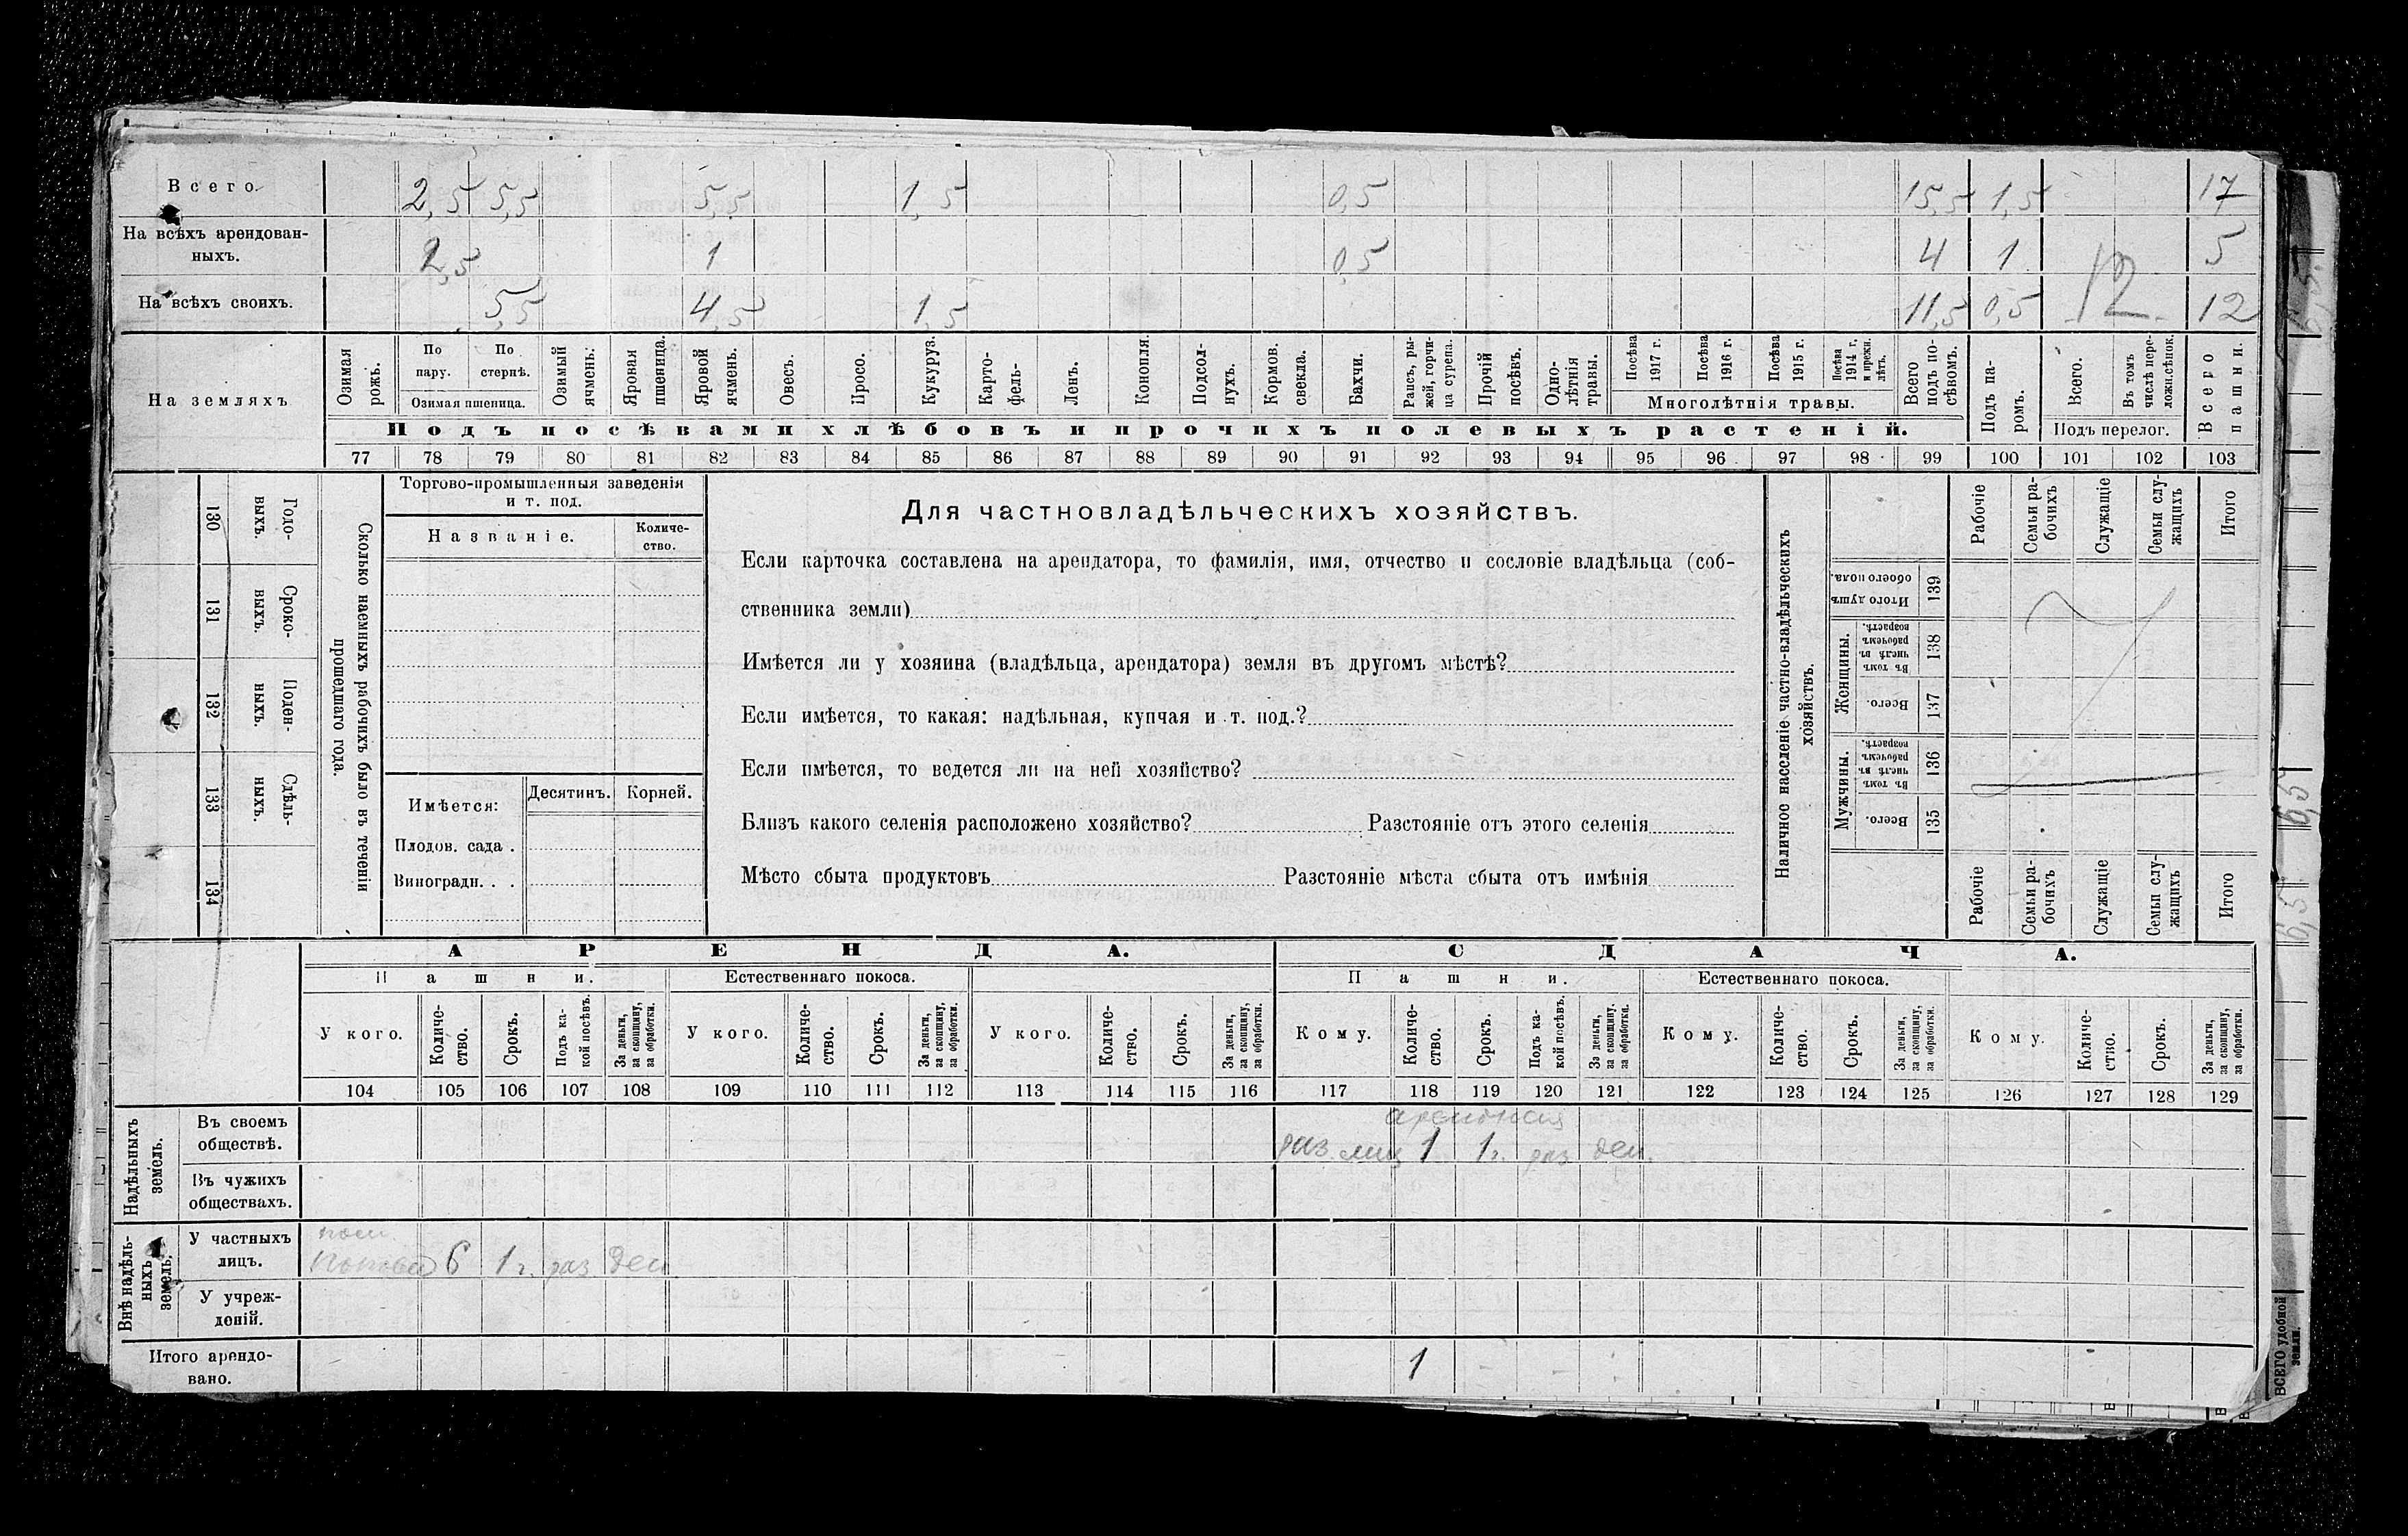 Всего. 2,5 5,5 5,5 1,5 0,5 15,5 1,5 17
На всѣхъ арендован-
ныхъ. 2,5 1 0,5 4 1 5
На всѣхъ своихъ. 5,5 4,5 1,5 11,5 0,5 12 12
На земляхъ
Озимая рожь.
По пару.
По стернѣ.
Озимая пшеница.
Озимый ячмень.
Яровая пшеница.
Яровой ячмень.
Овесъ.
Просо.
Кукуруз.
Карто-
фель-
Ленъ.
Конопля.
Подсол-
нухъ.
Кормов.
свекла.
Бахчи.
Рапсъ, ры-
жей, горчи-
ца сурепа.
Прочій
посѣвъ.
Одно-
лѣтнія
травы.
Посѣва
1917 г.
Посѣва
1916 г.
Посѣва
1915 г.
Посѣва
1914 г.
и прежн.
лѣтъ.
Многолѣтнія травы.
Всего
подъ по-
сѣвомъ.
Подъ па-
ромъ.
Всего.
Въ томъ
числѣ пере-
ложн.сѣнок.
Подъ перелог.
Всего
пашни.
Подъ посѣвами хлѣбовъ и прочихъ полевыхъ растеній.
77 78 79 80 81 82 83 84 85 86 87 88 89 90 91 92 93 94 95 96 97 98 99 100 101 102 103
130 Годо-
ныхъ.
131 Сроко-
ныхъ.
132 Поден-
ныхъ.
133 Сдѣль-
ныхъ.
134
Сколько наемныхъ рабочихъ было въ теченіи
прошедшаго года.
Торгово-промышленныя заведенія
и т. под.
Названіе.
Количе-
ство.
Имѣется:
Десятинъ.
Корней.
Плодов. сада .
Виноградн. . .
Для частновладѣльческихъ хозяйствъ.
Если карточка составлена на арендатора, то фамилія, имя, отчество и сословіе владѣльца (соб-
ственника земли)
Имѣется ли у хозяина (владѣльца, арендатора) земля въ другомъ мѣстѣ?
Если имѣется, то какая: надѣльная, купчая и т. под.?
Если имѣется, то ведется ли на ней хозяйство?
Близъ какого селенія расположено хозяйство? Разстояніе отъ этого селенія
Мѣсто сбыта продуктовъ Разстояніе мѣста сбыта отъ имѣнія
Наличное населеніе частно-владѣльческихъ
хозяйствъ.
Рабочіе
Семьи ра-
бочихъ
Служащіе
Семьи слу-
жащихъ
Итого
Итого душъ
обоего пола.
139
Женщины.
Въ томъ
числѣ въ
рабочемъ
возрастѣ.
138
Всего.
137
Мужчины.
Въ томъ
числѣ въ
рабочемъ
возрастѣ.
136
Всего.
135
Рабочіе
Семьи ра-
бочихъ
Служащіе
Семьи слу-
жащихъ
Итого
АРЕНДА. СДАЧА.
Пашни. Естественнаго покоса. Пашни. Естественнаго покоса.
У кого.
Количе-
ство.
Срокъ.
Подъ ка-
кой посѣвъ.
За деньги,
за скопщину,
за обработки.
У кого.
Количе-
ство.
Срокъ.
За деньги,
за скопщину,
за обработки.
У кого.
Количе-
ство.
Срокъ.
За деньги,
за скопщину,
за обработки.
Кому.
Количе-
ство.
Срокъ.
Подъ ка-
кой посѣвъ.
За деньги,
за скопщину,
за обработки.
Кому.
Количе-
ство.
Срокъ.
За деньги,
за скопщину,
за обработки.
Кому.
Количе-
ство.
Срокъ.
За деньги,
за скопщину,
за обработки.
104 105 106 107 108 109 110 111 112 113 114 115 116 117 118 119 120 121 122 123 124 125 126 127 128 129
Надѣльныхъ
земель.
Въ своемъ
обществѣ.
раз. лиц 1 1 г. раз ден.
Въ чужихъ
обществахъ.
Внѣ надѣль-
ныхъ
земель.
У частныхъ
лицъ.
6 1 г. раз ден
У учреж-
деній.
Итого арендо-
вано. 1
ВСЕГО удобной
земли.